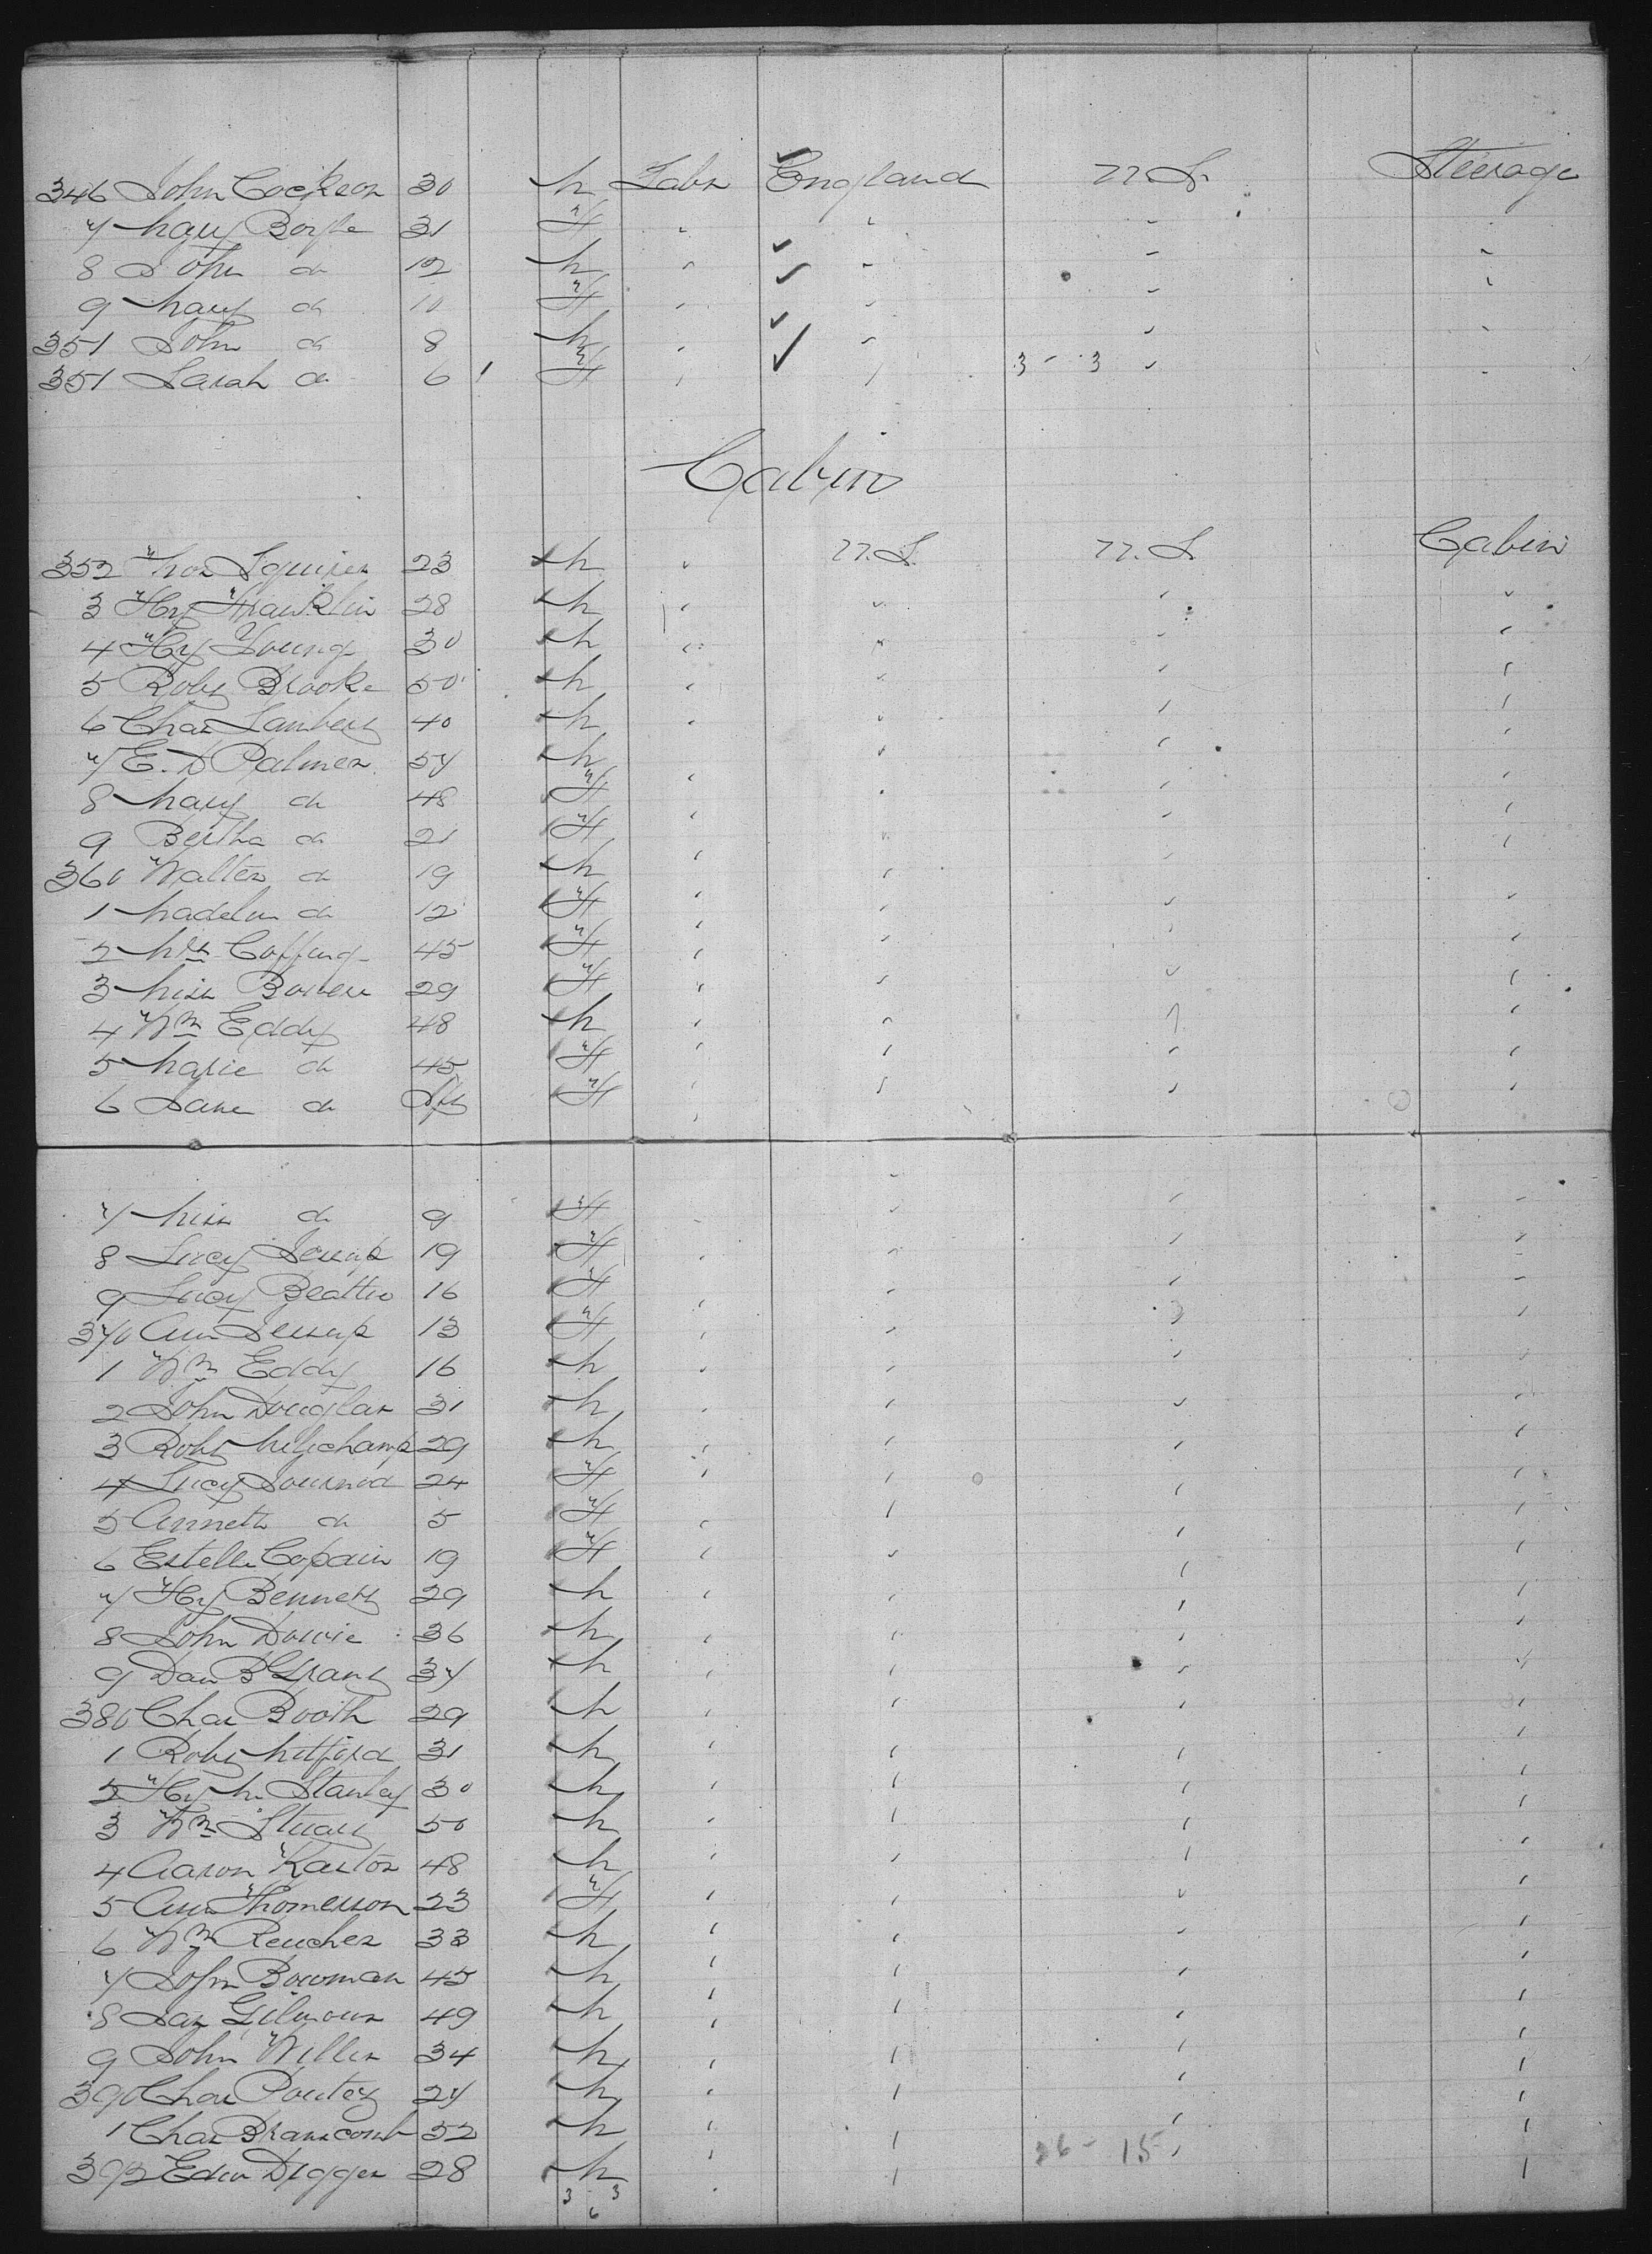 346 John Cockson 30 M Labr England U.S. Steerage
7 Mary Boyle 31 F " " " "
8 John do 12 M " " " "
9 Mary do 10 F " " " "
351 John do 8 M " " " "
351 Sarah do 6 F " " 3 - 3 " "
Cabin
352 Thos Squires 23 M " U.S. U.S. Cabin
3 Hy Franklin 28 M " " " "
4 Hy Young 30 M " " " "
5 Robt Brooke 50 M " " " "
6 Chas Lambert 40 M " " " "
7 E. D Palmer 57 M " " " "
8 Mary do 48 F " " " "
9 Bertha do 21 F " " " "
360 Walter do 19 M " " " "
1 Madelin do 12 F " " " "
2 Mrs Coffing 45 F " " " "
3 Miss Bowen 29 F " " " "
4 Wm Eddy 48 M " " " "
5 Marie do 45 F " " " "
6 Jane do F " " " "
7 Miss do 9 F " " " "
8 Lucy Jessup 19 F " " " "
9 Lucy Beattie 16 F " " " "
370 Ann Jessup 13 F " " " "
1 Wm Eddy 16 M " " " "
2 John Douglas 31 M " " " "
3 Robt 29 M " " " "
4 Lucy 24 F " " " "
5 Anneth do 5 F " " " "
6 Estelle Copain 19 F " " " "
7 Hy Bennett 29 M " " " "
8 John Dowie 36 M " " " "
9 Dan B Grant 37 M " " " "
380 Chas Booth 29 M " " " "
1 Robt Mitford 31 M " " " "
2 Hy M Stanley 30 M " " " "
3 Wm Stuart 50 M " " " "
4 Aaron Kaston 48 M " " " "
5 Ann Thomesson 23 F " " " "
6 Wm Reucher 33 M " " " "
7 John Bowman 45 M " " " "
8 Jas Gilmour 49 M " " " "
9 John Willis 34 M " " " "
390 Chas Poutey 27 M " " " "
1 Chas Branscomb 32 M " " " "
392 Edw Digges 28 M " " 26 - 15 " "
3 - 3
6